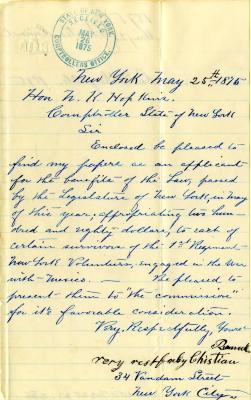 STATE OF NEW YORK
RECEIVED
MAY
26
1875
COMPTROLLERS OFFICE.
New York May 25th 1875
Hon N. K Hopkins.
Comptroller State of New York
Sir
Enclosed be pleased to
find my papers as an applicant
for the benefits of the Law, passed
by the Legislature of New York, in May
of this year, appropriating two hun-
dred and eighty dollars, to each of
certain survivors of the 1st Regiment
New York Volunteers, engaged in the War
with Mexico. — Be pleased to
present them to "the commission"
for its favorable consideration.
Very Respectfully, Yours
very restfuly Chistian
34 Vandam Street
New York City